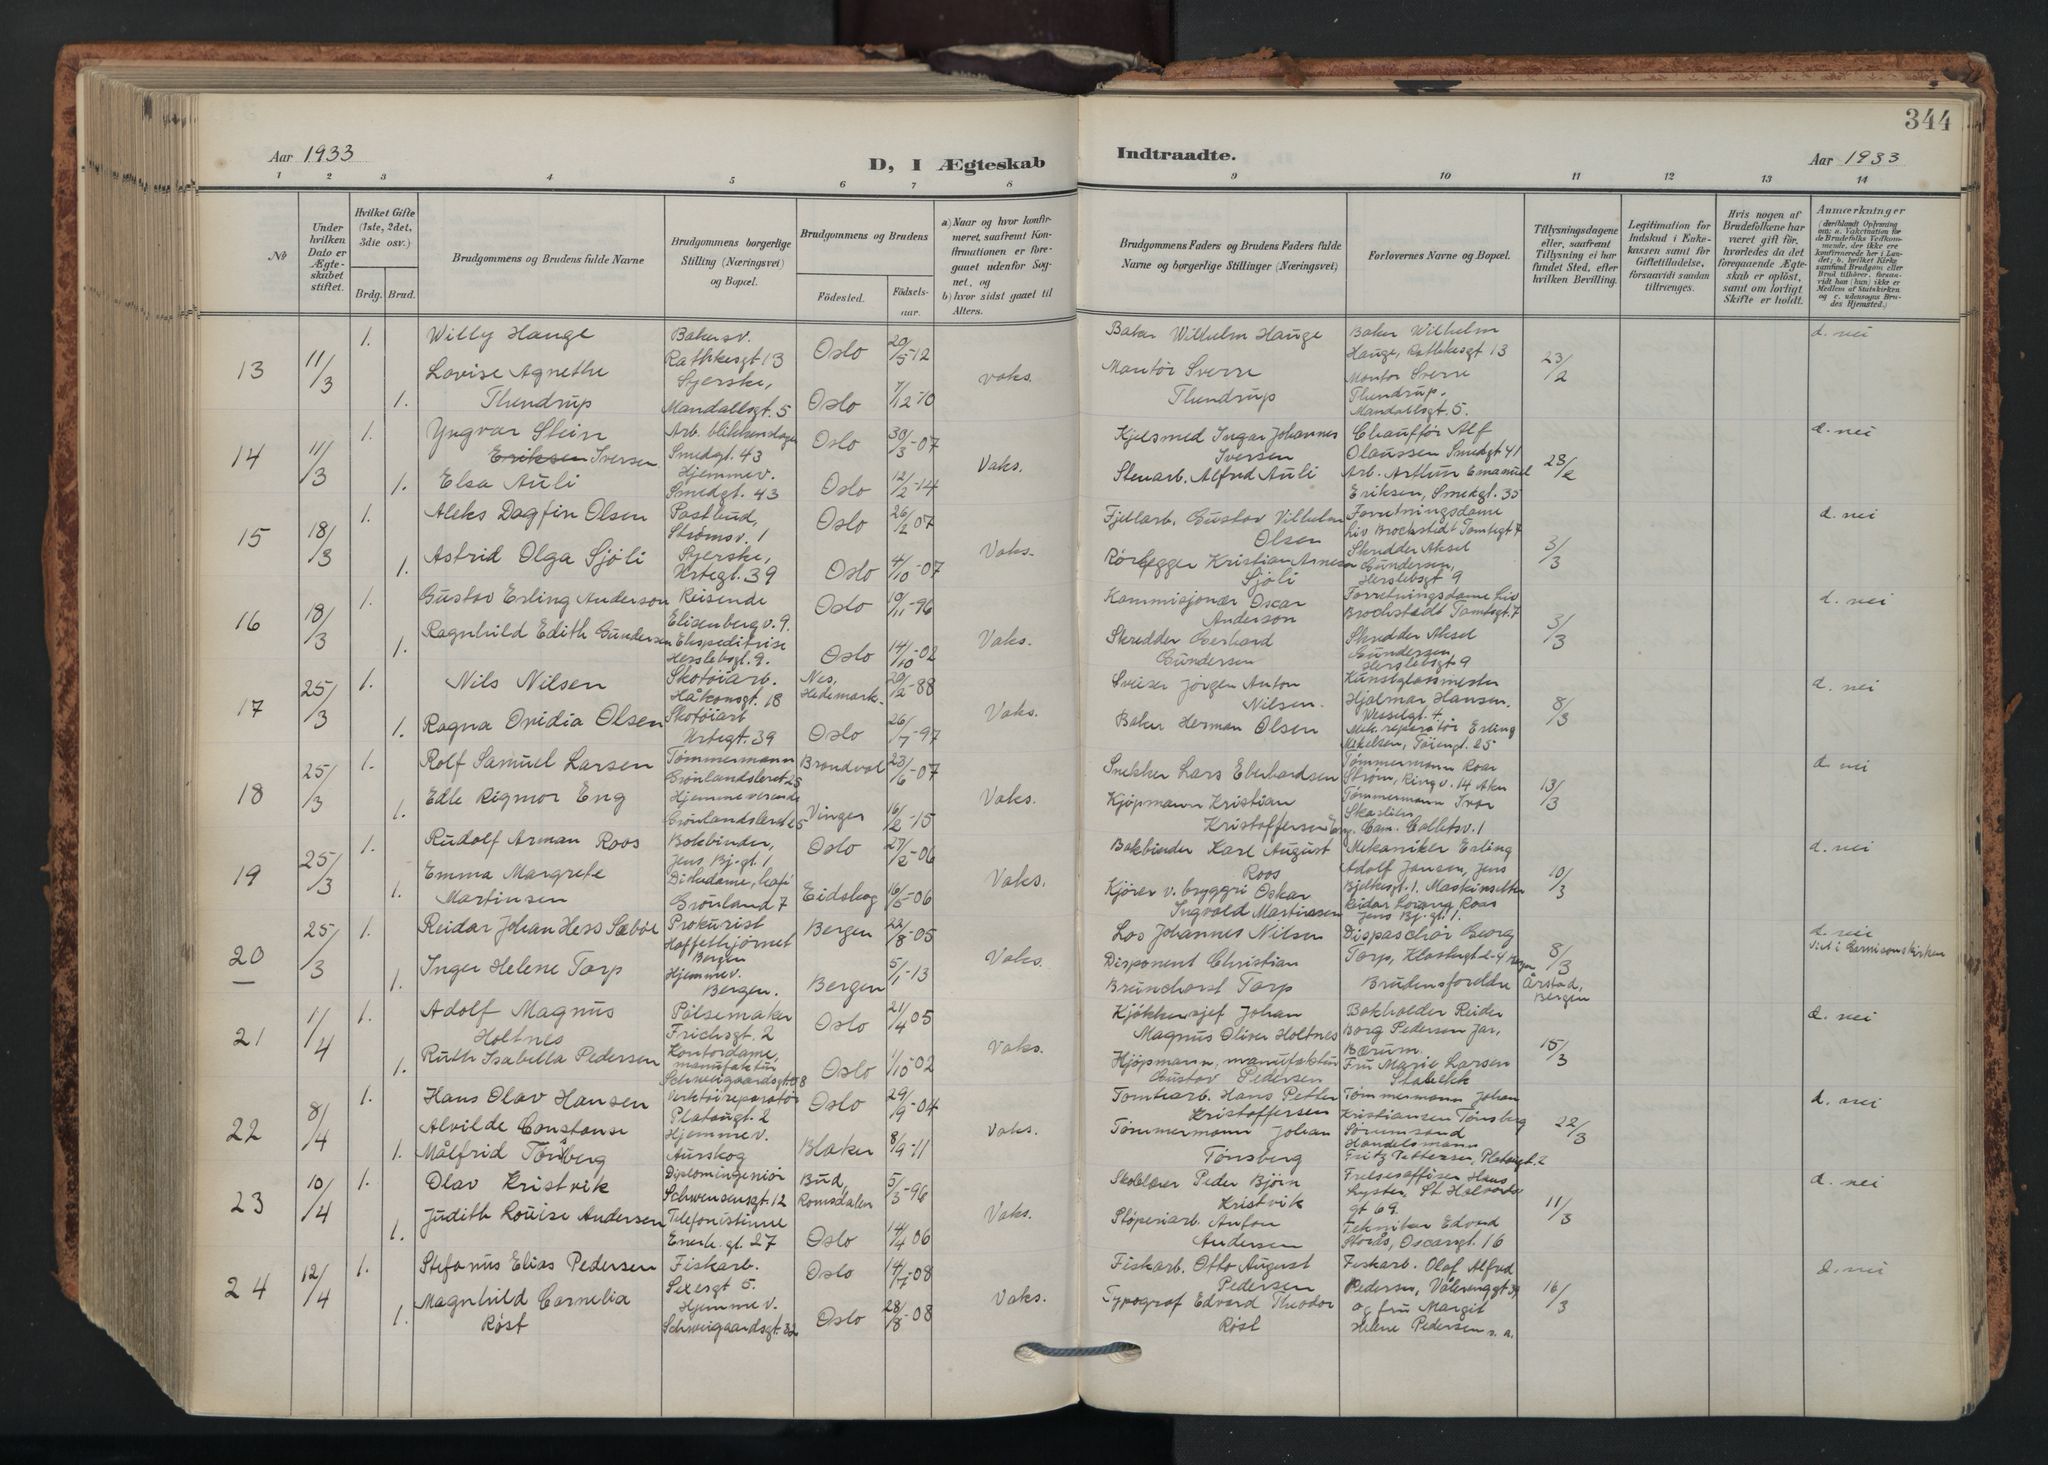 344
Aar 1933
D, I Ægteskab
Indtraadte.
Aar 1933
1 2 3 4 5 6 7 8 9 10 11 12 13 14
No
Under hvilken Dato er Ægteskabet stiftet.
Hvilket Gifte (1ste, 2det, 3die osv.)
Brdg. Brud.
Brudgommens og Brudens fulde Navne
Brudgommens borgerlige Stilling (Næringsvei) og Bopæl.
Brudgommens og Brudens
Födested. Födsels-aar.
a) Naar og hvor konfirmeret, saafremt Konfirmationen er foregaaet udenfor Sognet, og
b) hvor sidst gaaet til Alters.
Brudgommens Faders og Brudens Faders fulde Navne og borgerlige Stillinger (Næringsvei)
Forlovernes Navne og Bopæl.
Tillysningsdagene eller, saafremt Tillysning ei har fundet Sted, efter hvilken Bevilling.
Legitimation for Indskud i Enkekassen samt för Giftetilladelse, forsaavidt saadan tiltrænges.
Hvis nogen af Brudefolkene har været gift för, hvorledes da det foregaaende Ægteskab er oplöst, samt om lovligt Skifte er holdt.
Anmærkninger
(deriblandt Oplysning om: a. Vakcination for de Brudefolks Vedkommende, der ikke ere konfirmerede her i Landet; b. hvilket Kirkesamfund Brudgom eller Brud tilhörer, forsaavidt han (hun) ikke er Medlem af Statskirken og c. udensogns Brudes Hjemsted.)
13 11/3 1. Willy Hauge Bakersv. Rathkesgt 13 Oslo 20/5-12 Vaks. Baker Wilhelm Hauge Baker Wilhelm Hauge, Rathkesgt 13 23/2 d. nei
1. Lovise Agnethe Thendrup Syerske, Mandallsgt. 5 Oslo 7/12-10 Montør Sverre Thendrup Montør Sverre Thendrup, Mandallsgt 5.
14 11/3 1. Yngvar Stein Eriksen Iversen Arb. blikkenslager Smedgt. 43 Oslo 30/3-07 Vaks. Kjelsmed Ingar Johannes Iversen Chauffør Alf Olaussen Smedgt 41 23/2 d. nei
1. Elsa Auli Hjemmev. Smedgt. 43 Oslo 12/2-14 Stenarb. Alfred Auli Arb. Arthur Emanuel Eriksen, Smedgt. 35
15 18/3 1. Aleks Dagfin Olsen Postbud, Strømsv. 1 Oslo 26/2 07 Vaks. Fjellarb. Gustav Vilhelm Olsen Forretningsdame Liv Brochstedt Tomtegt 7 3/3 d. nei
1. Astrid Olga Sjöli Syerske, Urtegt. 39 Oslo 4/10-07 Rørlegger Kristian Arnesen Sjöli Skredder Aksel Gundersen, Herslebsgt 9
16 18/3 1. Gustav Erling Anderson Reisende Elisenberg v. 9. Oslo 19/11-96 Vaks. Kommisjonær Oscar Anderson Forretningsdame Liv Brochstedt Tomtegt. 7 3/3 d. nei
1. Ragnhild Edith Gundersen Ekspeditrise Herslebsgt. 9. Oslo 14/10-02 Skredder Gerhard Gundersen Skredder Aksel Gundersen Herslebsgt 9
17 25/3 1. Nils Nilsen Skotøiarb. Håkonsgt. 18 Nes, Hedemark. 20/2-88 Vaks. Sveiser Jörgen Anton Nilsen. Kunstglassmester Hjalmar Hansen, Wesselgt. 4 8/3 d. nei
1. Ragna Ovidia Olsen Skotøiarb Urtegt. 39 Oslo 26/7-97 Baker Herman Olsen Mek. reparatør Erling Mikelsen, Töiengt. 25
18 25/3 1. Rolf Samuel Larsen Tømmermann Grønlandsleret 25 Brandval 23/6-07 Vaks. Snekker Lars Eberhardsen Tømmermann Roar Strøm, Ring v. 14 Aker 13/3 d. nei
1. Edle Rigmor Eng Hjemmeverende Grønlandsleret 25 Vinger 16/2-15 Kjöpmann Kristian Kristoffersen Eng. Tømmermann Ivar Skaslien Cam. Colletsv. 1
19 25/3 1. Rudolf Arman Roos Bokbinder, Jens Bj. gt. 1 Oslo 27/2-06 Vaks. Bokbinder Karl August Roos Mekaniker Erling Adolf Jansen, Jens Bjelkesgt. 1. 10/3 d. nei
1. Emma Margrete Martinsen Diskedame, Café Grönland 7 Eidskog 16/5-06 Kjører v. bryggri Oskar Ingvald Martinssen Maskinsetter Reidar Lorang Roos Jens Bj. gt 1.
20 25/3 1. Reidar Johan Hess Sæböe Prokurist Kaffethjörnet Bergen Bergen 22/8-05 Vaks. Los Johannes Nilsen Dispaschör Georg Torp, Klostergt 2-4 Bergen 8/3 Årstad, Bergen d. nei Viet i Garnisonskirken
1. Inger Helene Torp Hjemmev. Bergen. Bergen 5/1-13 Disponent Christian Brunchorst Torp Brudens foreldre
21 1/4 1. Adolf Magnus Holtnes Pölsemaker Frichsgt. 2 Oslo 21/4 05 Vaks. Kjökkensjef Johan Magnus Oliver Holtnes Bokholder Reidar Borg Pedersen Jar, Bærum. 15/3 d. nei
1. Ruth Isabella Pedersen Kontordame, manufaktur Schweigaardsgt. 98 Oslo 1/10-02 Kjöpmann, manufaktur Gustav Pedersen Fru Marie Larsen Stabekk
22 8/4 1. Hans Olav Hansen Verktöireparatör Platougt. 2 Oslo 29/9-04 Vaks. Tomtearb. Hans Petter Kristoffersen Tømmermann Johan Kristiansen Tønsberg Sörumsand 22/3 d. nei
1. Alvilde Constanse Målfrid Tönsberg Hjemmev. Aurskog Blaker 8/9-11 Tömmermann Johan Tönsberg Handelsmann Fritz Pettersen, Platougt. 2
23 10/4 1. Olav Kristvik Diplomingeniör Schwensensgt. 12 Bud, Romsdalen 5/3-96 Vaks. Skolelærer Peder Bjørn Kristvik Frelsesoffiser Hans Lyster, St. Halvards gt 69. 11/3 d. nei
1. Judith Louise Andersen Telefonistinne Enerh. gt. 27 Oslo 14/4 06 Støperiarb. Anton Andersen Tekniker Edvard Storås, Oscarsgt. 16
24 12/4 1. Stefanus Elias Pedersen Fiskarb. Sexesgt 5. Oslo 14/7-08 Vaks. Fiskarb. Otto August Pedersen Fiskarb. Olaf Alfred Pedersen, Vålerenggt 39 16/3 d. nei
1. Magnhild Cornelia Røst Hjemmev. Schweigaardsgt. 32 Oslo 28/8-08 Typograf Edvard Theodor Røst og fru Margit Helene Pedersen s. a.